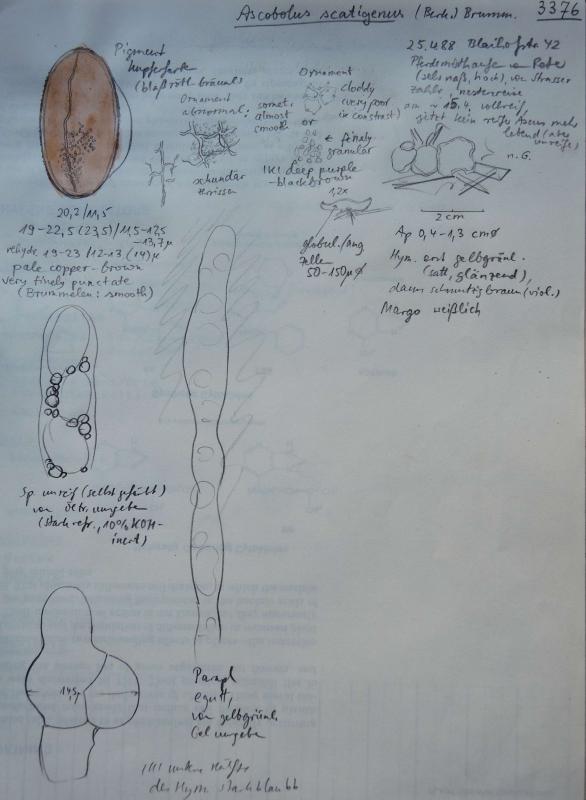 Ascobolus scatigenus (Berk.) Brumm. 3376
25.4.88 Blaihofstr. 42
Pferdemisthaufe
(sehr naß, hoch), Strasser
am ~ 15.4. vollreif,
jetzt kein reifer Ascus mehr
lebend (aber
unreife)
n. G.
2 cm
Ap 0,4-1,3 cm ø
Hym. erst gelbgrünl.
(satt, glänzend),
dann schmutzigbraun (viol.)
Margo weißlich
Pigment
kupferfarb
(blaßrötl.-bräunl.)
Ornament
abnormal:
somet.
almost
smooth
schundär
zerrissen
Ornament
cloddy
(very poor
in contrast)
or
finely
granular
IKI deep purple
-blackbrown
1,2x
globul./ang
Zellen
50-150µ ø
20,2/11,5
19-22,5 (23,5)/11,5-12,5
-13,7µ
rehydr. 19-23/12-13 (14)µ
pale copper-brown
very finely punctate
(Brummelen: smooth)
Sp. unreif (selbst gefärbt)
von umgeben
(stark refr., 10% KOH-
inert)
14,5µ
Paraph
egutt,
von gelbgrünl.
Gel umgeben
IKI untere Hälfte
des Hym. stark blau bb